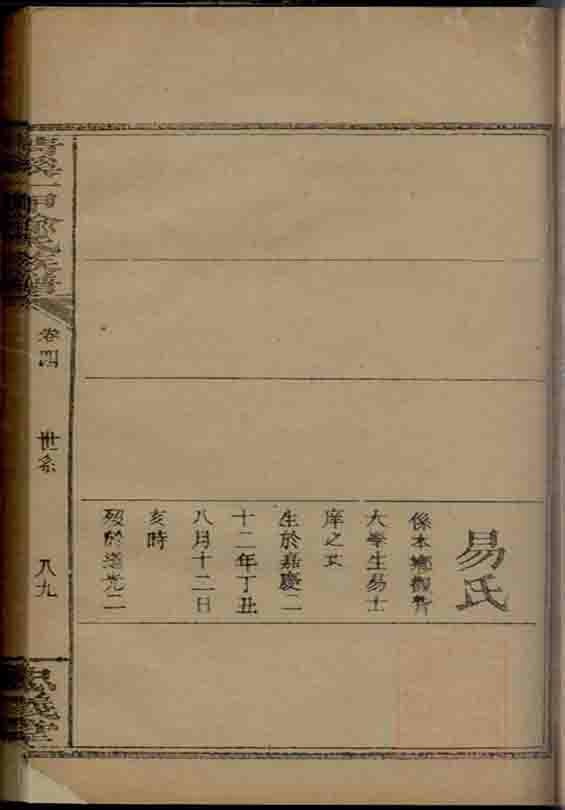 易氏
係本鄉觀背
大學生易士
庠之女
生於嘉慶二
十二年丁丑
八月十二日
亥時
歿於道光二
卷四
世系
八九
忠義堂